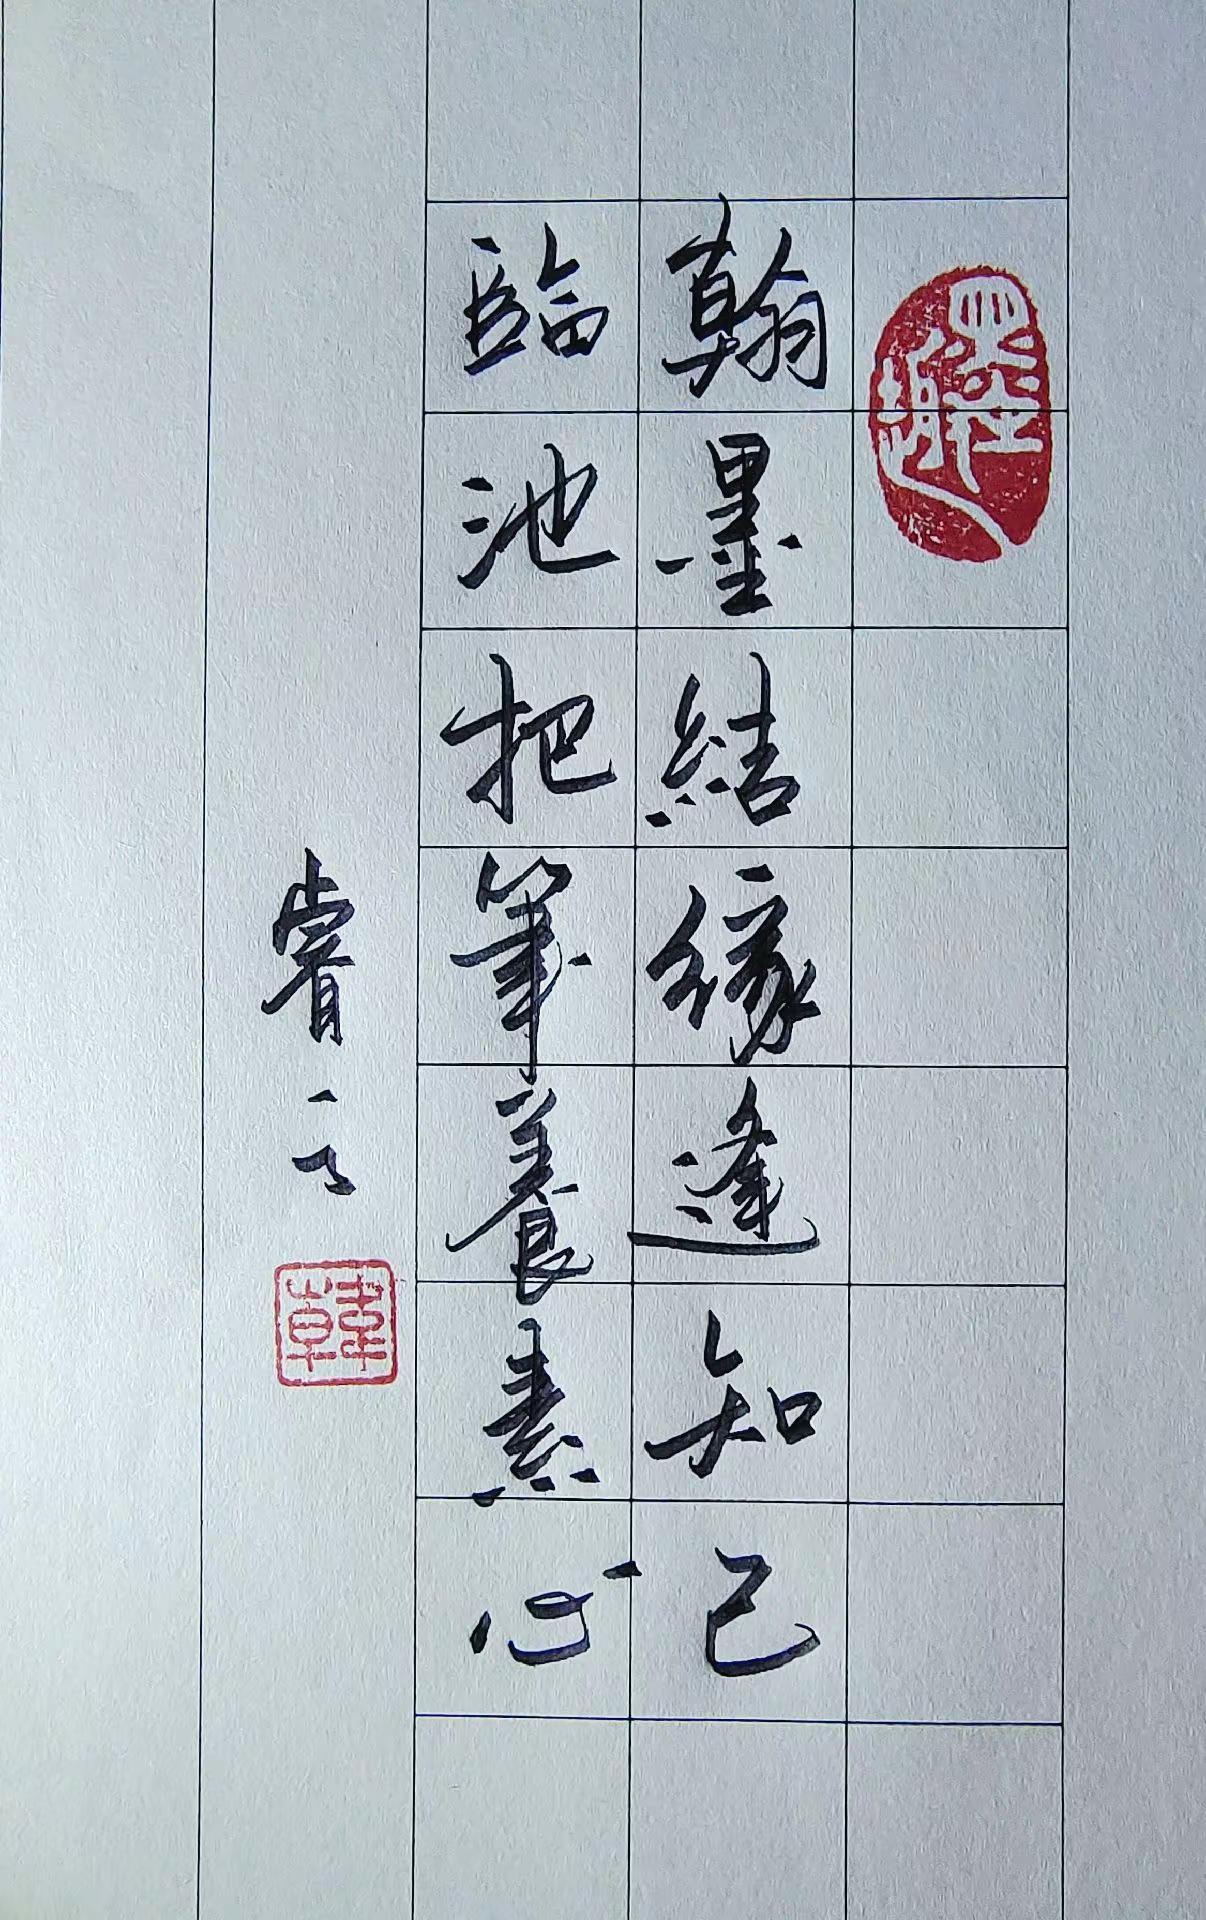 翰墨結緣逢知己
臨池把筆養素心
韓